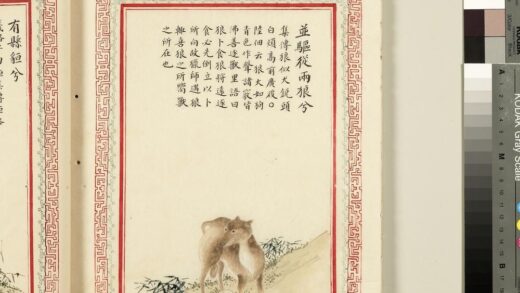 並驅從兩狼兮
集傳狼似犬銳頭
白頰高前廣後○
陸佃云狼大如狗
青色作聲諸竅皆
沸善逐獸里語曰
狼卜食狼將遠逐
食必先倒立以卜
所向故獵師遇狼
輒喜狼之所嚮獸
之所在也
有縣貆兮
KODAK Gray Scale
A
M
B